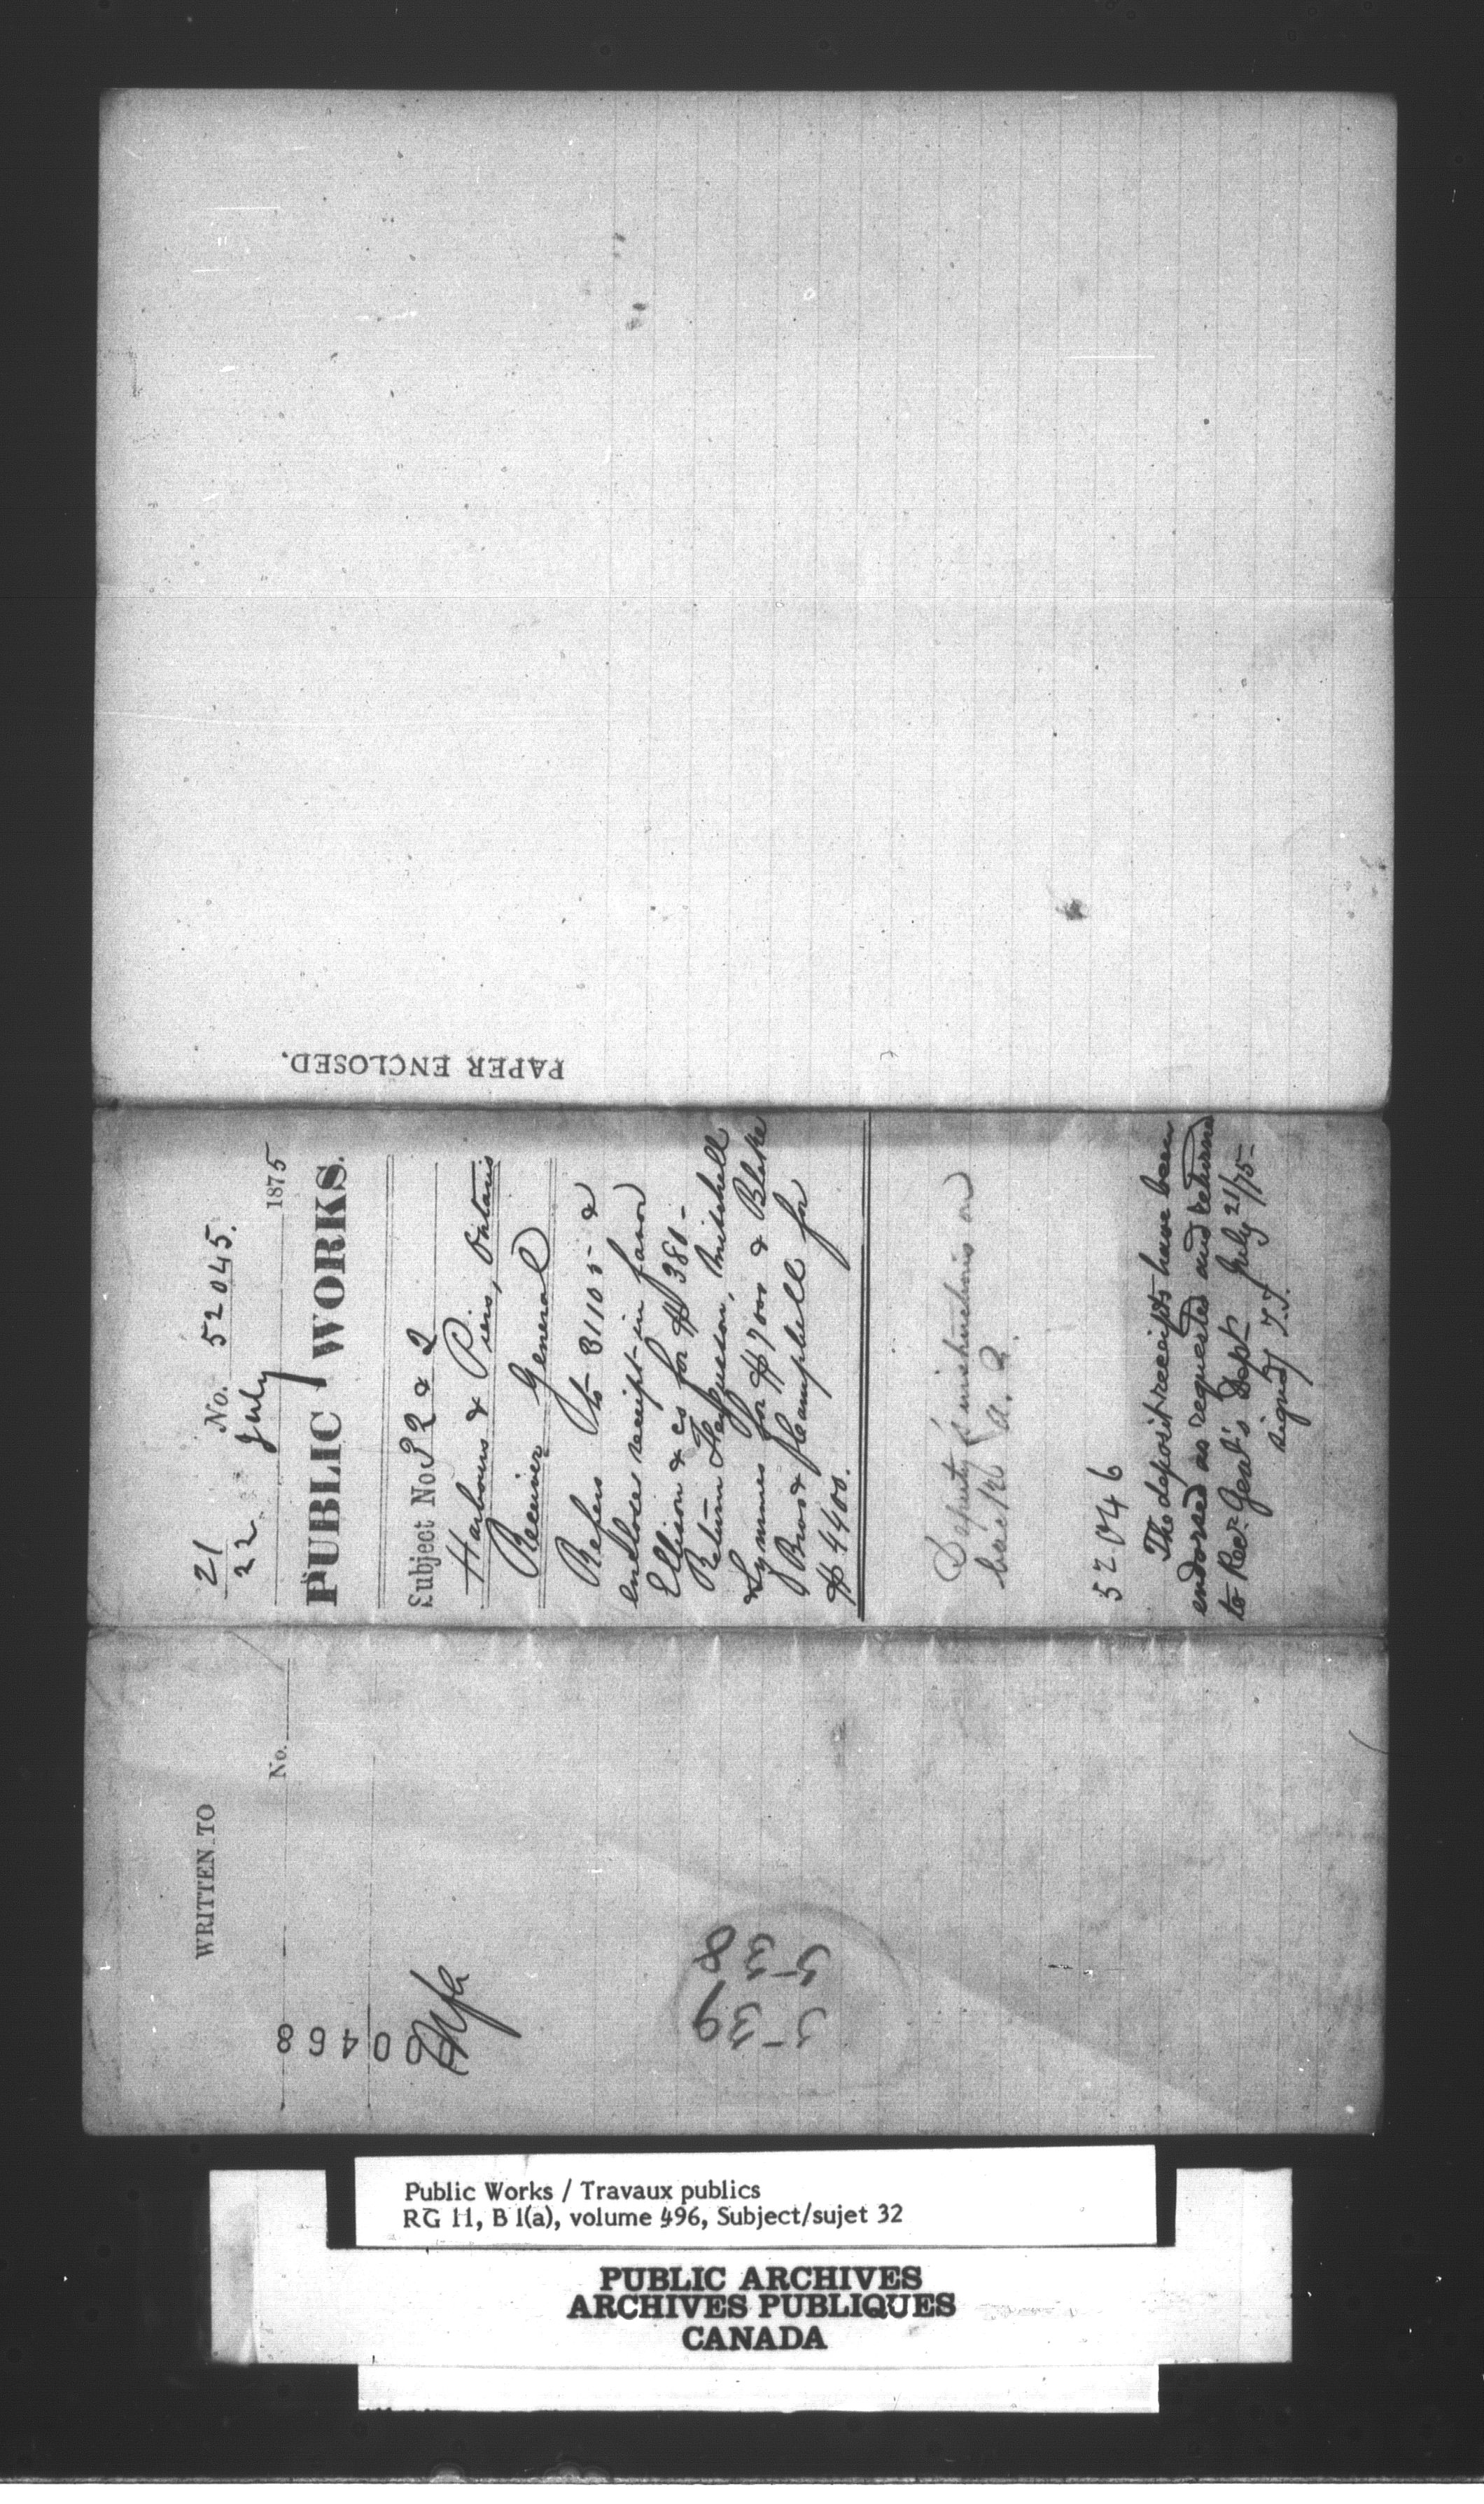 PAPER ENCLOSED.
21
22 No. 52045.
July 1875
PUBLIC WORKS.
Subject No. 32 & 2
Harbours & Piers, Ontario
Receiver General
Refers to 31105 &
encloses receipt in favor
Ellison & Co for $380-
Return Ferguson, Mitchell
& Symmes for $7000 & Blake
Bros & Campbell for
$4400.
Deputy's instructions on
back
52046
The deposit receipts have been
endorsed as requested and returned
to Rec. Genl's Dept July 21/75-
signed
WRITTEN TO
No.
000468
538
539
Public Works / Travaux publics
RG 11, B 1(a), volume 496, Subject/sujet 32
PUBLIC ARCHIVES
ARCHIVES PUBLIQUES
CANADA